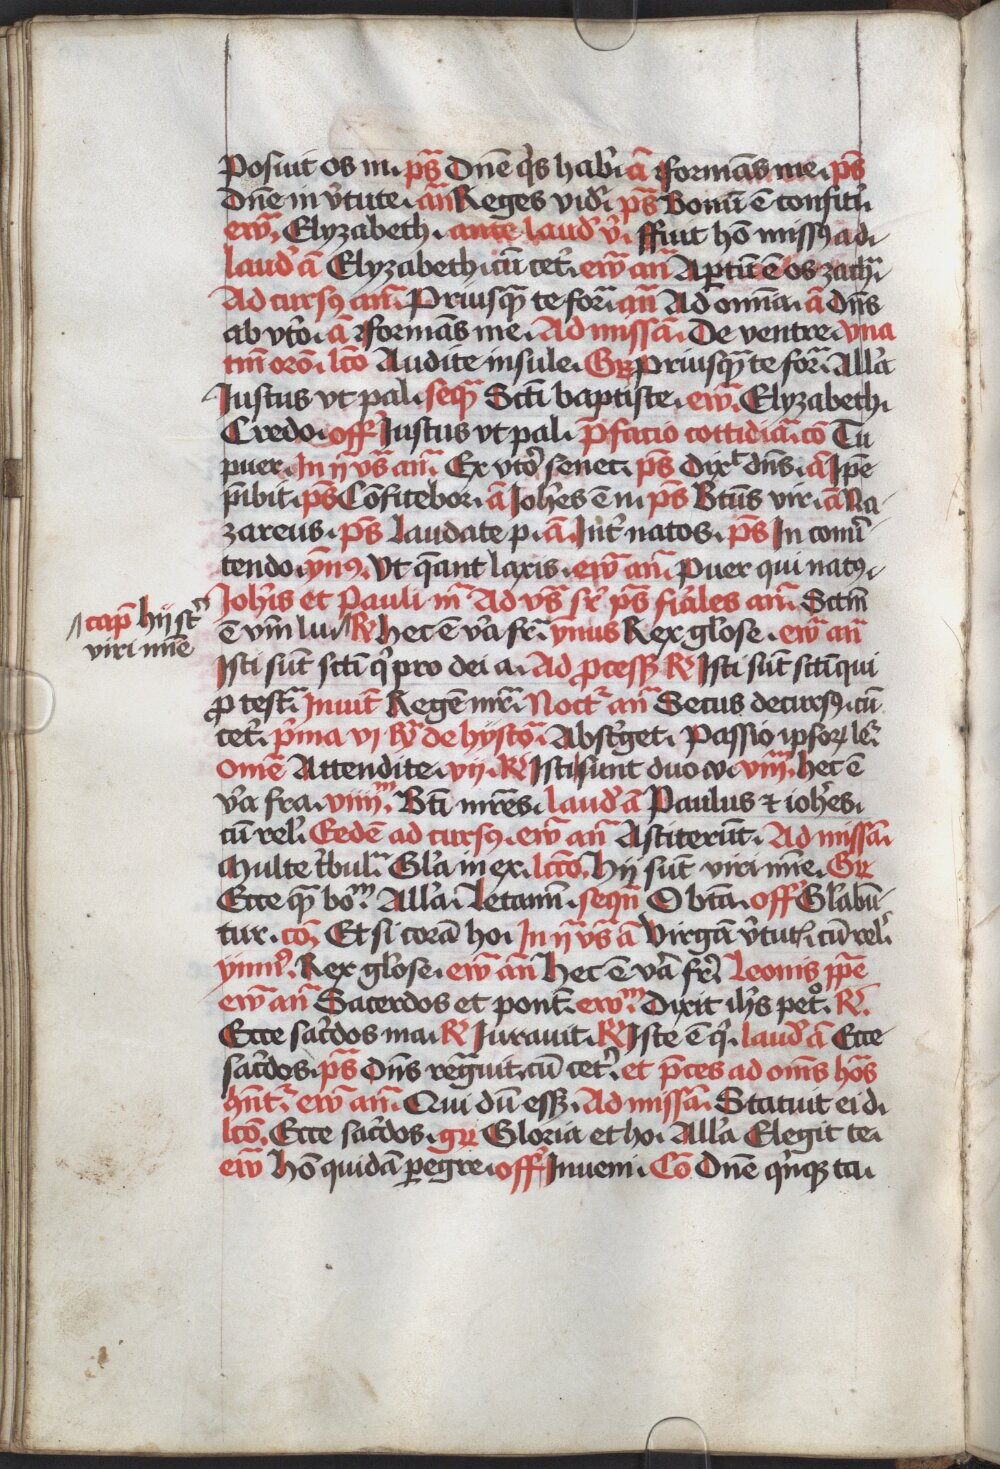 Posuit os m. ps̄ Dn̄e q̇s hab̓. ā Formās me. ps̄
Dn̄e in v̓tute. an̄ Reges vid̓. ps̄ Bonū ē confit̓.
ew̄. Elyzabeth. ante laud̓ v̓. ffuit hō miss9 a d.
laud̓ ā Elyzabeth. cū cet̓. ew̄ an̄ Ap̱tū ē os zach̓.
Ad curs9 an̄. Priusq̄ te for̓. an̄ Ad om̄ia. ā Dn̄s
ab vt̓o. ā Formās me. Ad missā. De ventre. vna
tm̄ orō. lc̄o Audite insule. Gr̄ Priusq̄ te for̓. All̓a
Justus vt pal. seq̄ Sc̄ti baptiste. ew̄. Elyzabeth.
Credo. off̓ Justus vt pal. p̄facio cottidiā. cō Tu
puer. In ij vs̄ an̄. Ex vt̓o senec. ps̄ Dixᵗ dn̄s. ā Ip̄e
p̄ibit. ps̄ Cōfitebor. ā Joh̓es ē m. ps̄ Bt̄us vir. ā Na-
zareus. ps̄ Laudate p. ā. Int̓ natos. ps̄ In conu̓-
tendo. ȳn9. Vt q̄ant laxis. ew̄ an̄. Puer qui nat9.
Joh̓is et Pauli m̄ Ad vs̄ sr̓ ps̄ fiales an̄. Sc̄tm̄
cap̄ hij st̄
viri mīe
ē vm̄ lu. R̓ hec ē v̓a fr̓. ymnus Rex gl̓ose. ew̄ an̄
Isti sūt sc̄ti q̓ pro dei a. Ad p̱cess9 R̓ Isti sūt sc̄ti qui
p̱ test̓. Inuit̄ Regē mr̄. Noct̓ an̄ Secus decurs9. cū
cet̓. p̓ma vi R̓ de hystō. Abst̓get. Passio ipsoꝝ le̓.
Omē Attendite. vij. R̓ Isti sunt duo o. viij. hec ē
v̓a fra. viiij. Bt̄i mr̄es. laud̓ ā Paulus ⁊ ioh̓es.
cū rel̓. Eedē ad curs9. ew̄ an̄ Astiterūt. Ad missā.
Multe t̄bul̓. Gl̓a in ex. lc̄o. Hij sūt viri mīe. Gr̄
Ecce q̄ boᵐ. All̓a. Letam̄. seqn̄ O bt̄a. off̓ Gl̓abū-
tur. cō. Et si corā ho. In ij vs̄ ā Virgā v̓tut̓. cū rel̓.
ymn9. Rex gl̓ose. ew̄ an̄ Hec ē v̄a fr̓. Leonis p̄pe
ew̄ an̄ Sacerdos et pont̄. ewᵐ. Dixit ih̓s pet̊. R̓.
Ecce sac̓dos ma. R̓ Jurauit. R̓ Iste ē q̓. laud̓ ā Ecce
sac̓dos. ps̄ Dn̄s regn̄uit. cū cet̓. et p̄ces ad om̄s hōs
hn̄t̓. ew̄ an̄. Qui dū ess9. Ad missā. Statuit ei d.
lc̄o. Ecce sac̓dos. gr̄ Gloria et ho. All̓a Elegit te.
ew̄ Hō quidā p̱egre. off̓ Inueni. Cō Dn̄e q̓nqꝫ ta.